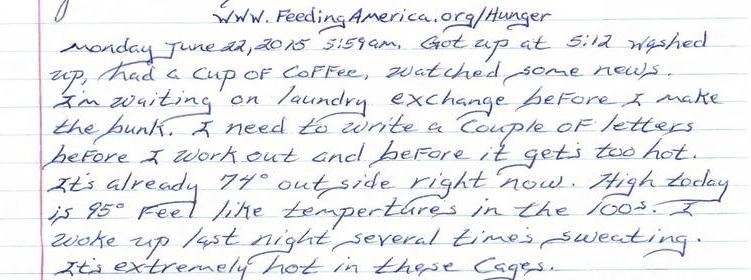 www.FeedingAmerica.org/Hunger
Monday June 22, 2015 5:59am. Got up at 5:12 washed
up, had a cup of coffee, watched some news.
I'm waiting on laundry exchange before I make
the bunk. I need to write a couple of letters
before I work out and before it gets too hot.
It's already 74° outside right now. High today
is 95° Feel like tempertures in the 100s. I
woke up last night several time's sweating.
It's extremely hot in these cages.